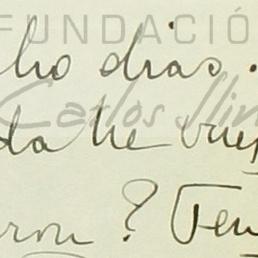 FUNDACIÓ
ho dias.
Carlos Slim
da he vues
ron? Ten